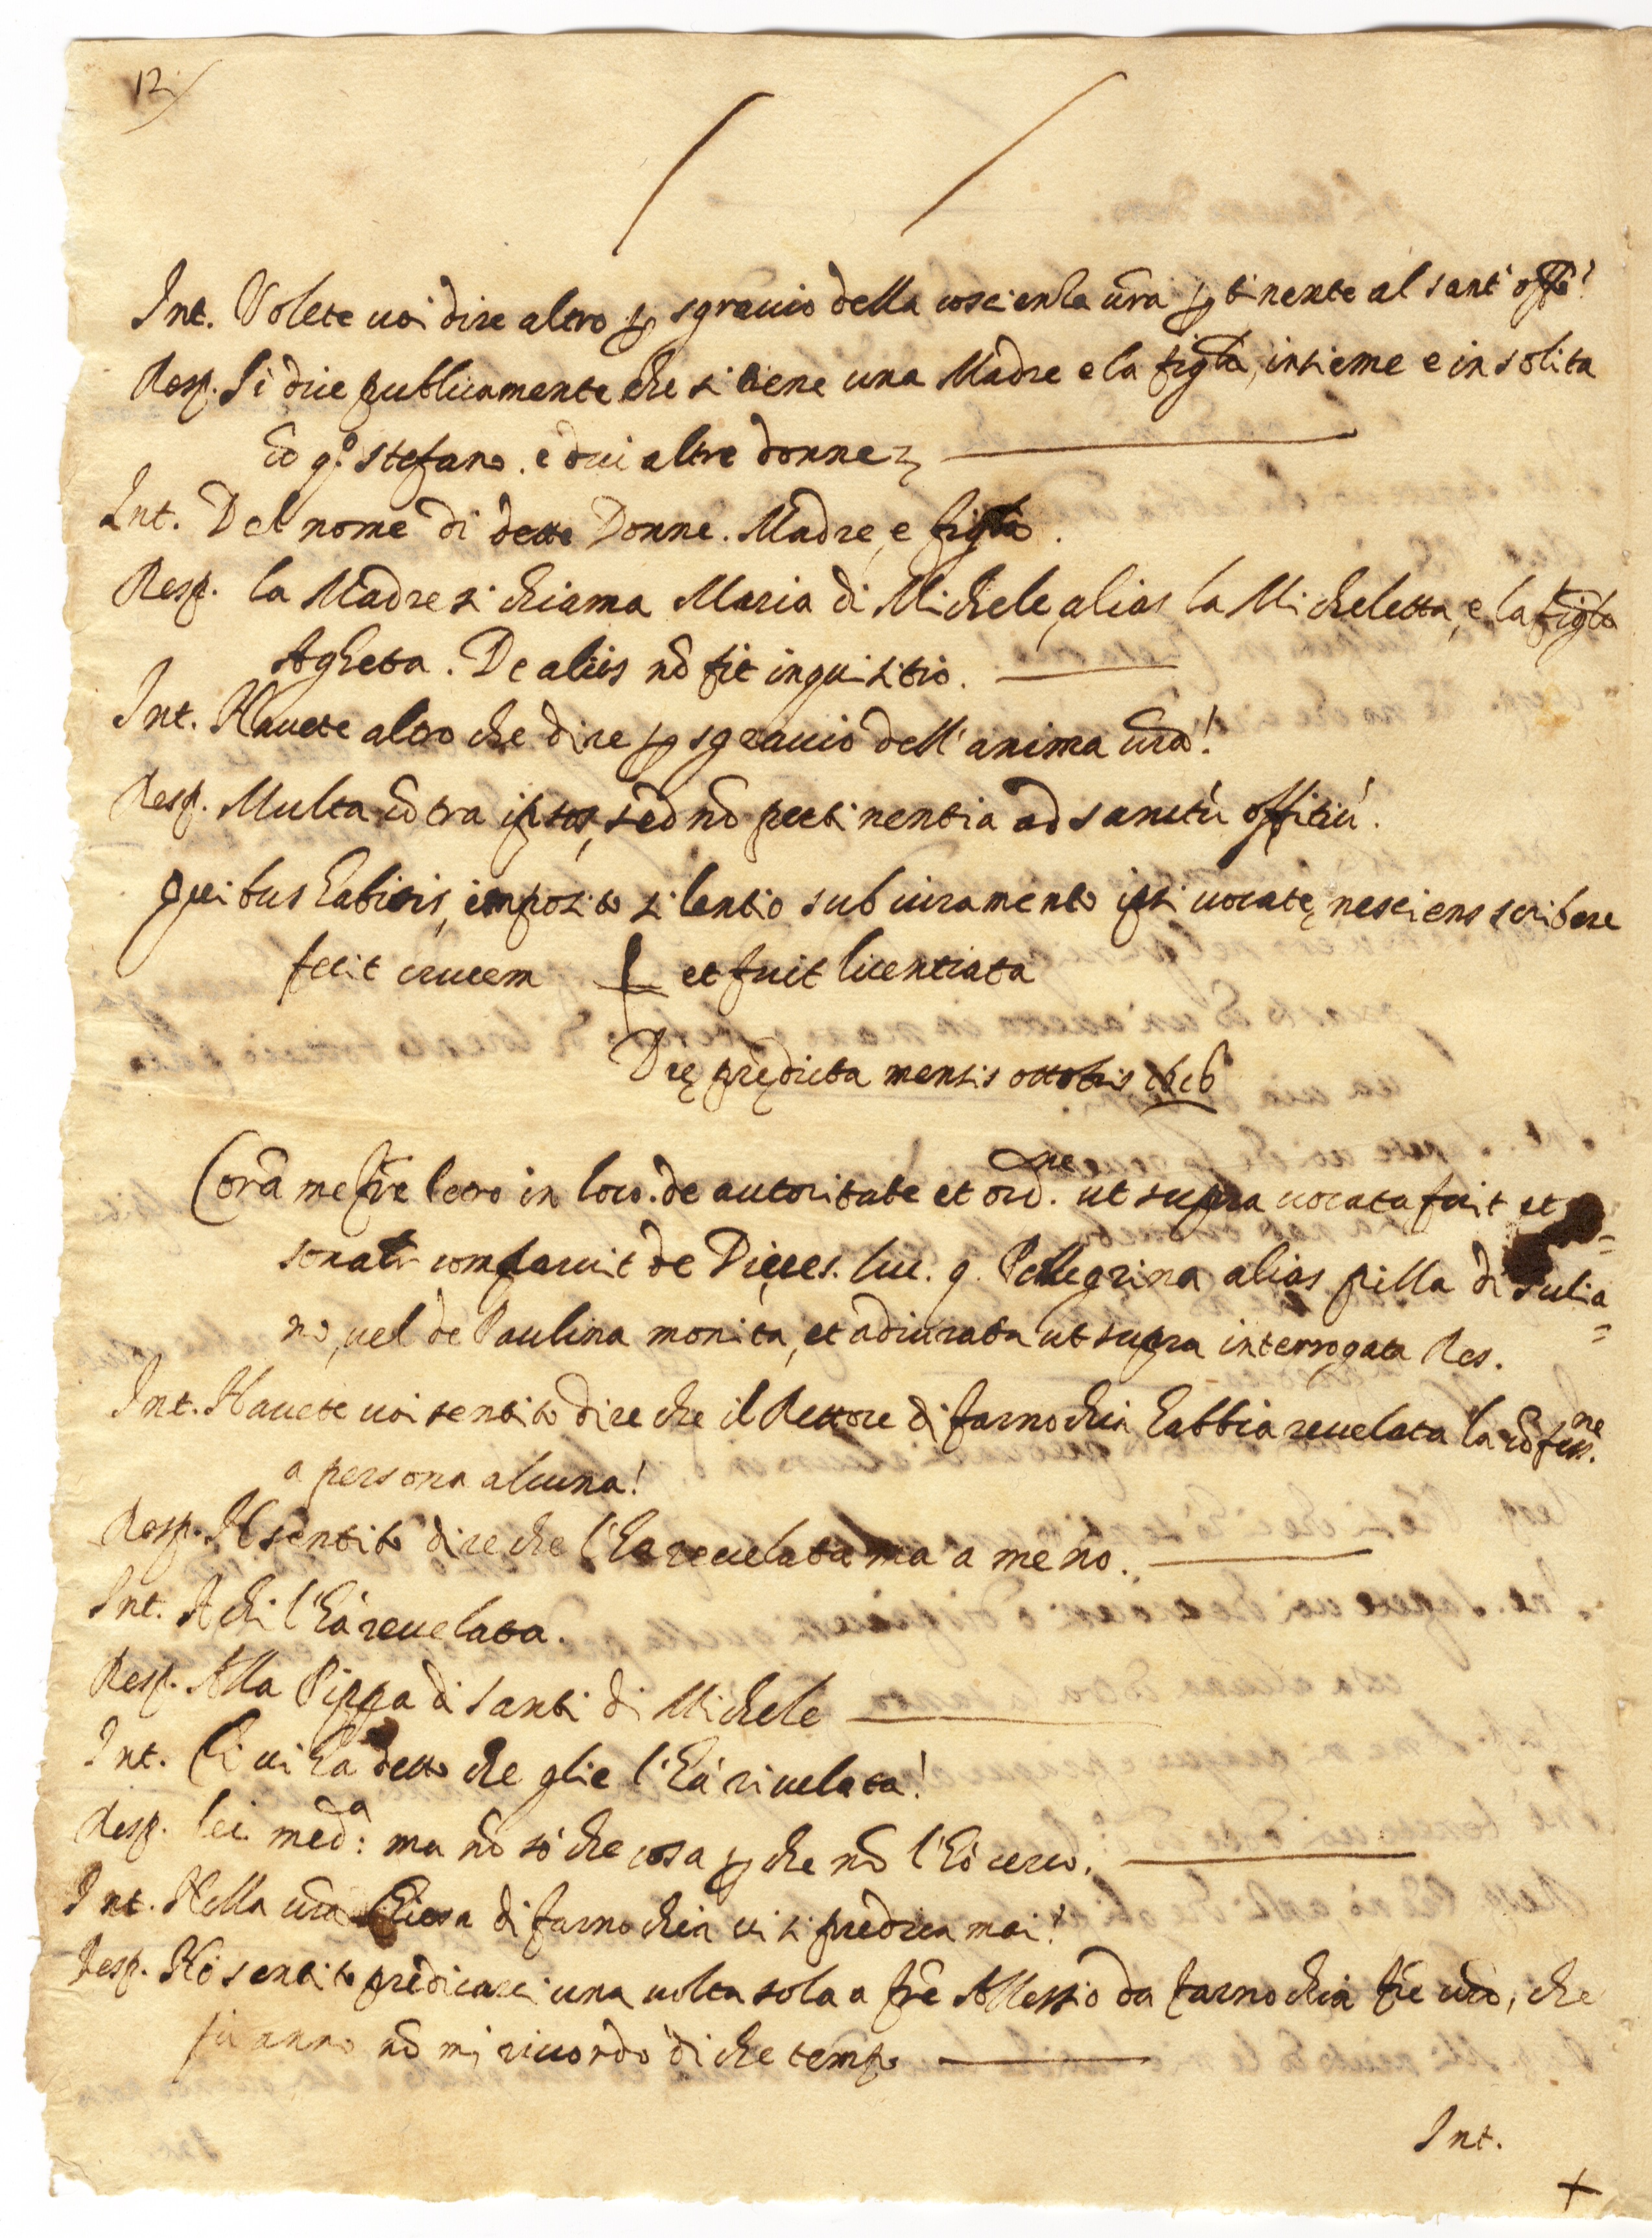 12
Int. Volete voi dire altro p sgravio della coscienza vra ptinente al sant'offo?
Resp. Si dice publicamente che si tiene una Madre e la figla, insieme e in solita
cō q.o stefano. e dui altre donne
Int. Del nome di dette Donne. Madre, e figla.
Resp. la Madre si chiama Maria di Michele, alias la Micheletta, e la figla
Agheta. De aliis nō fit inquisitio.
Int. Havete altro che dire p sgravio dell'anima vra?
Resp. Multa cōtra ipsos, sed nō pertinentia ad sanctū offitiū.
Quibus habitis, imposito silentio sub iuramento ipsi vocatę, nesciens scribere
fecit crucem et fuit licentiata
Dię prędicta mensis ottobris 1616
Corā me fre loco in loco. de autoritate et ord.ne ut supra vocata fuit et
sonatr comparuit de Dieces. luc. q. Pellegrina alias pilla di Iulia=
no, vel de Paulina monita, et adiurata ut supra interrogata Res.
Int. Havete voi sentito dire che il Rettore di farnochia habbia revelata la cōfess.ne
a persona alcuna?
Resp. Hò sentito dire che l'ha revelata ma a me no.
Int. A chi l'hà revelata.
Resp. Alla Pippa di Santi di Michele
Int. Chi vi ha detto che glie l'hà rivelata?
Resp. lei med:a ma nō sò che cosa p che nō l'hò cerco.
Int. Nella vra Chiesa di farnochia vi si predica mai?
Resp. Hò sentito predicarci una volta sola a fre Allessio da farnochia fre vro, che
fù anno nō mi ricordo di che tempo
Int.